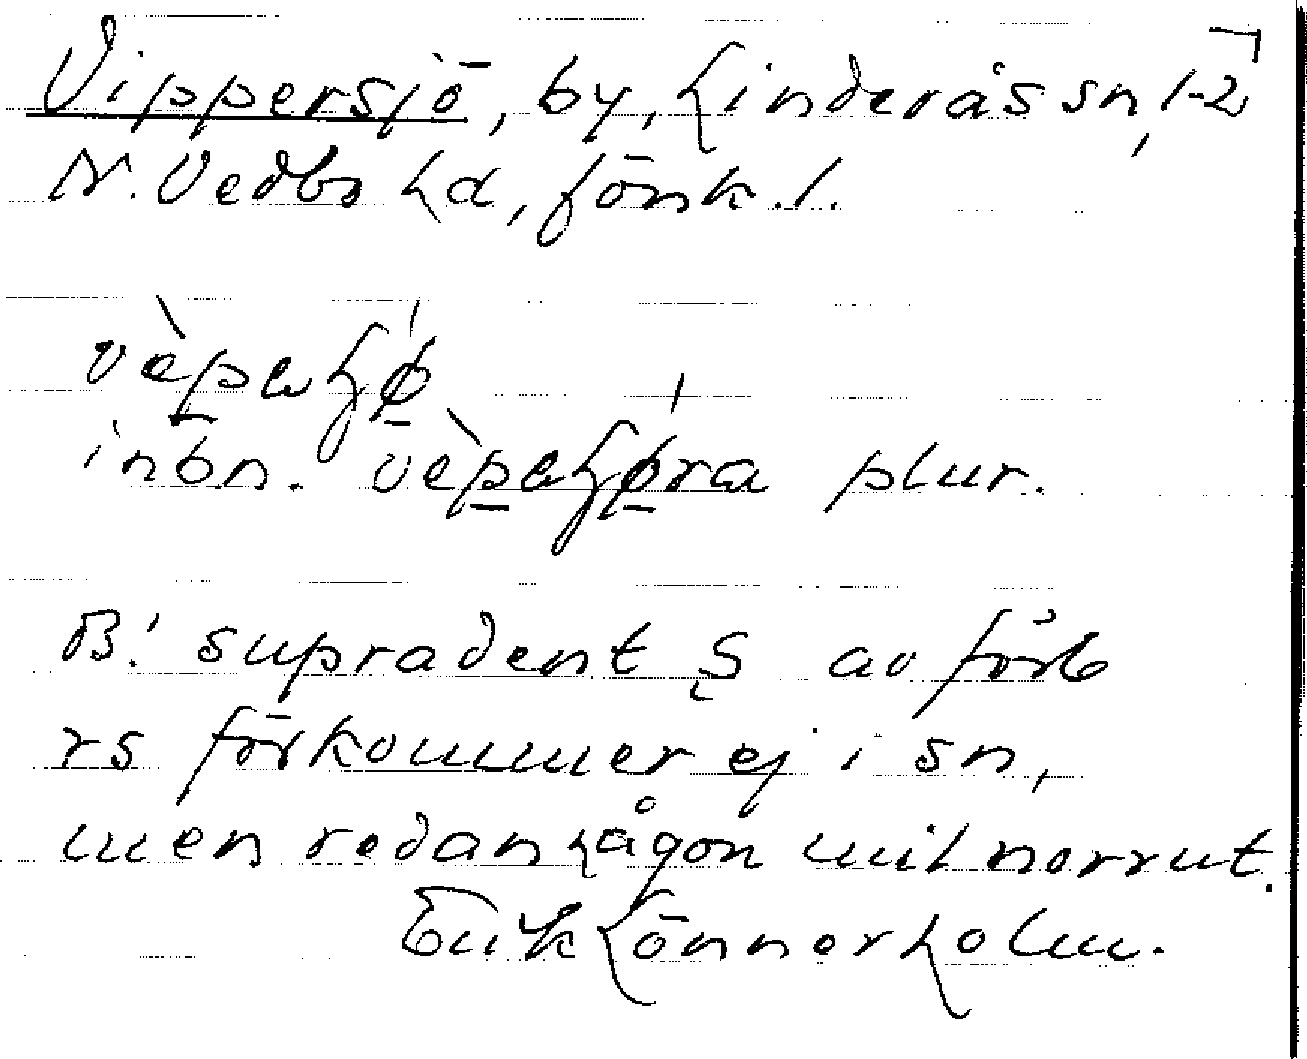 Vippersjö, by, Linderås sn, 1-2
N. Vedbo hd, Jönk. l.
inbn. plur.
B! supradent ʂ av förb
rs förkommer ej i sn,
men redan någon mil norrut.
Erik Lönnerholm.